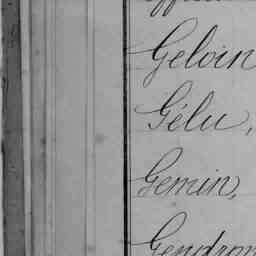 Geloin
Gélu,
Gemin,
Gendron